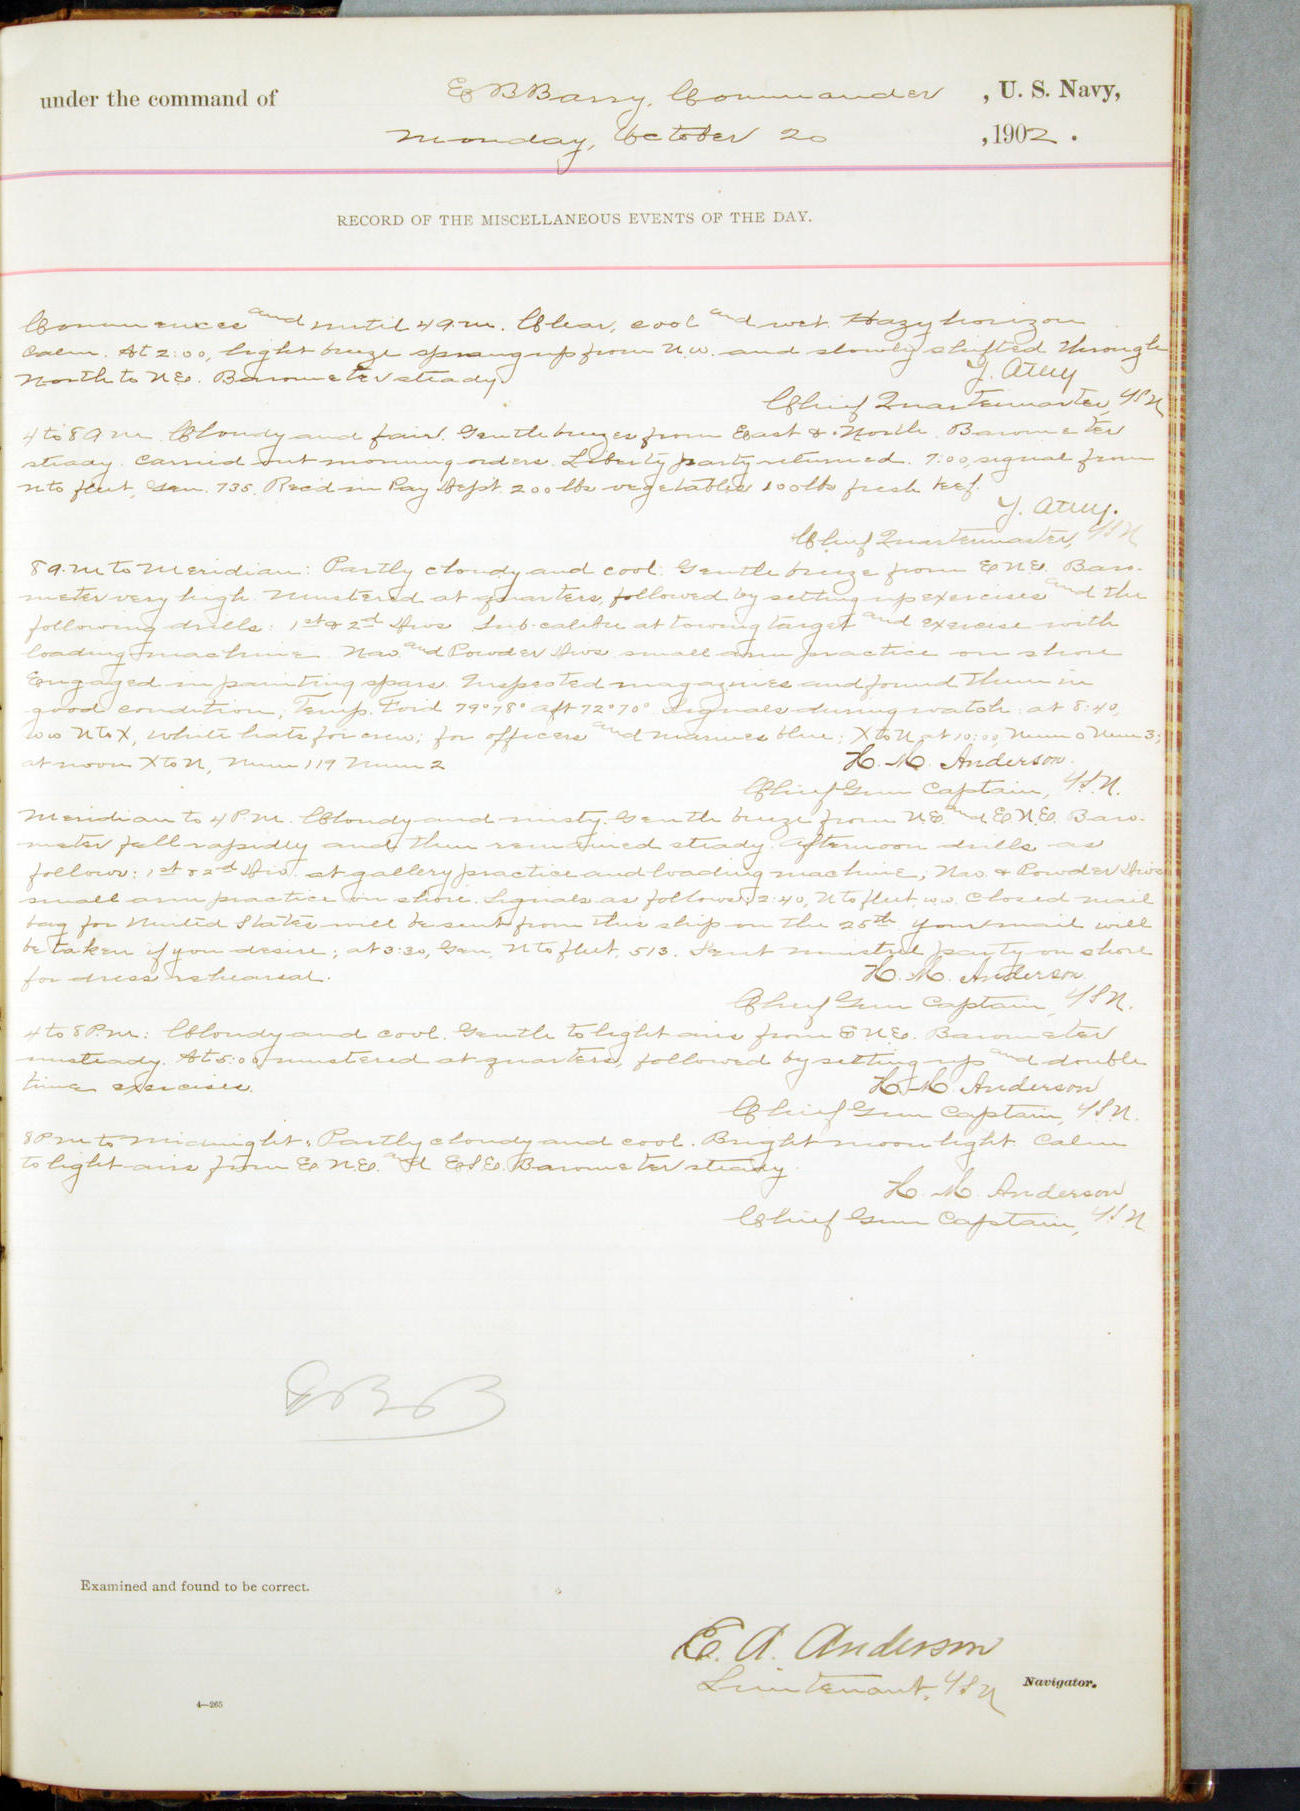 under the command of E B Barry, Commander, U. S. Navy,
Monday, October 20, 1902.
RECORD OF THE MISCELLANEOUS EVENTS OF THE DAY.
Commences and until 4 a.m. Clear, cool and wet. Hazy horizon
Calm. At 2:00, light breeze sprang up from N.W. and slowly shifted through
North to N.E. Barometer steady.
Chief Quartermaster, USN
4 to 8 a.m. Cloudy and fair. Gentle breezes from East & North. Barometer
steady. Carried out morning orders. Liberty party returned. 7:00, signal from
N to fleet, Gen. 735. Rec'd in Pay Dept. 200 lbs vegetables 100 lbs fresh beef.
Chief Quartermaster, USN
8 a.m. to Meridian: Partly cloudy and cool. Gentle breeze from E.N.E. Baro-
meter very high. Mustered at quarters, followed by setting up exercises and the
following drills: 1st & 2nd Divs Sub-calibre at towing target and exercise with
loading machine. Nav. and Powder Divs small arm practice on shore
Engaged in painting spars. Inspected magazines and found them in
good condition, Temp. Ford 79° 78° aft 72° 70° Signals during watch: at 8:40,
ww N to X, white hats for crew; for officers and marines blue; X to N at 10:00, Num 0 Num 3;
at noon X to N, Num 119 Num 2
H. M. Anderson.
Chief Gun Captain, U.S.N.
Meridian to 4 P.M. Cloudy and misty. Gentle breeze from N.E. and E.N.E. Baro-
meter fell rapidly and then remained steady. Afternoon drills as
follows: 1st & 2nd Div. at gallery practice and loading machine; Nav. & Powder Divs
small arm practice on shore. Signals as follows: 2:40, N to fleet, ww. Closed mail
bag for United States will be sent from this ship on the 25th your mail will
be taken if you desire; at 3:30, Gen. N to fleet, 513. Sent minstrel party on shore
for dress rehearsal.
H. M. Anderson
Chief Gun Captain, USN.
4 to 8 P.M.: Cloudy and cool. Gentle to light airs from E.N.E. Barometer
unsteady. At 5:00, mustered at quarters, followed by setting up and double
time exercises.
H. M. Anderson
Chief Gun Captain, USN.
8 P.M. to Midnight: Partly cloudy and cool. Bright moonlight. Calm
to light airs from E.N.E. and E.S.E. Barometer steady.
H. M. Anderson
Chief Gun Captain, USN
EBB
Examined and found to be correct.
E. A. Anderson
Lieutenant, USN Navigator.
4—265